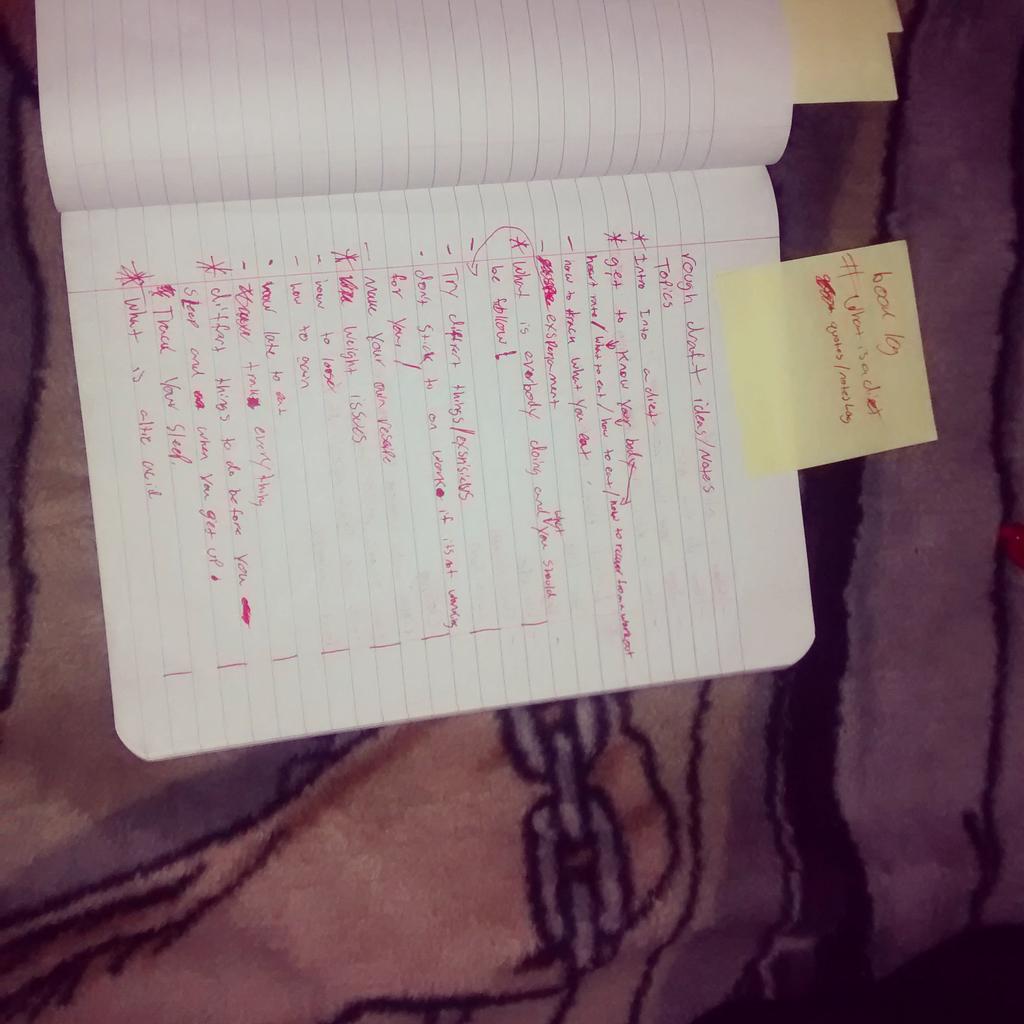 book log
# What is a diet
quotes/notes log
rough draft ideas/Notes
Topics
* Intro Into a diet
* get to Know your body
heart rate/what to eat/how to eat/how to recover from a workout
- how to track what you eat
- exsperament
* what is everbody doing and what you should
be follow!
- Try differnt things/
- dont stick to on work if its not working
for you/
- Make your own
* weight issues
- how to loose
- how to gain
• how late to eat
- track everything
* diffrnt things to do before you
sleep and when you get up.
* Track your sleep.
* What is